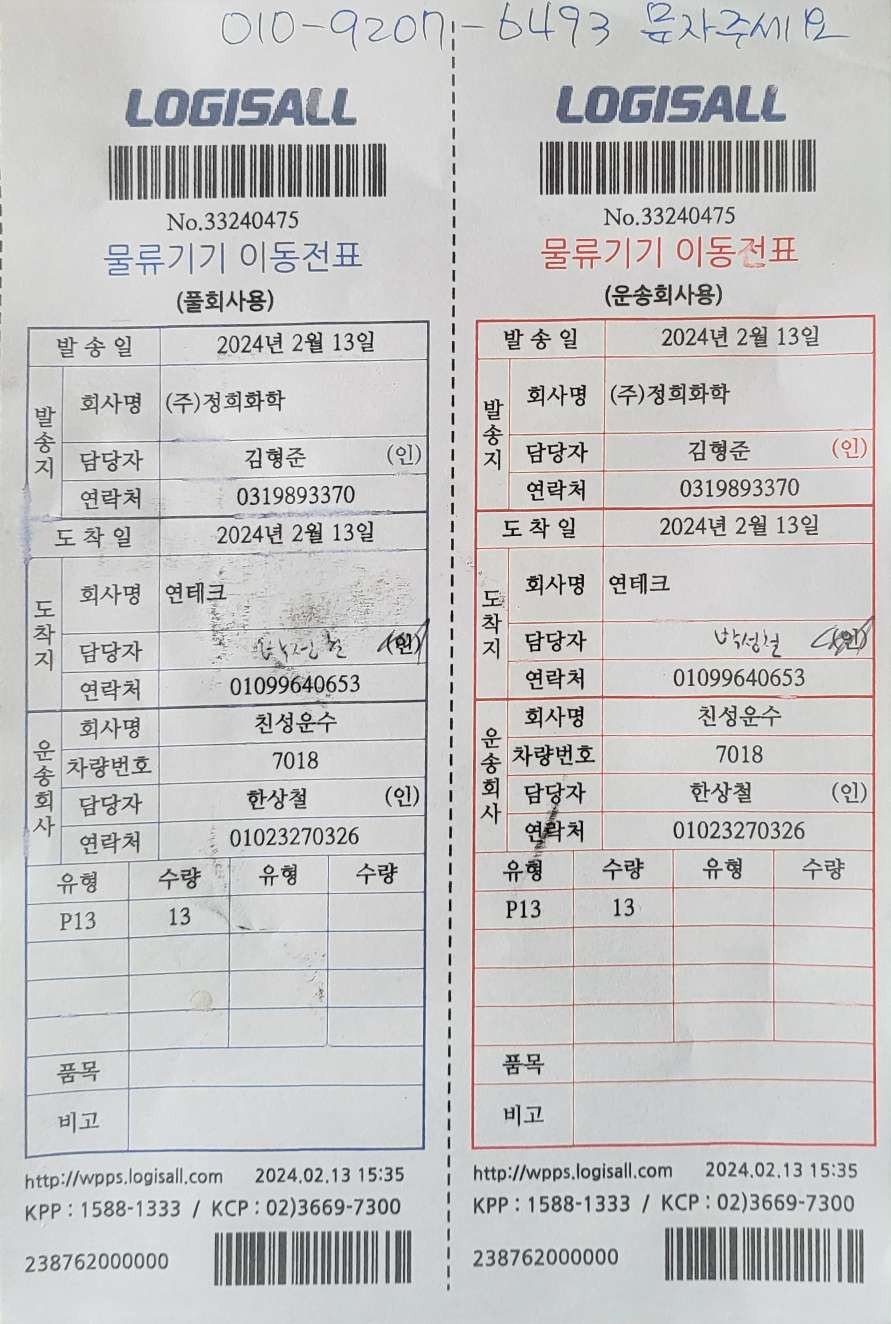 010-9207-6493 문자주세요
LOGISALL
No.33240475
물류기기 이동전표
(풀회사용)
발송일 2024년 2월 13일
발송지
회사명 (주)정희화학
담당자 김형준 (인)
연락처 0319893370
도착일 2024년 2월 13일
도착지
회사명 연테크
담당자 박성철 (인)
연락처 01099640653
운송회사
회사명 친성운수
차량번호 7018
담당자 한상철 (인)
연락처 01023270326
유형 수량 유형 수량
P13 13
품목
비고
http://wpps.logisall.com 2024.02.13 15:35
KPP : 1588-1333 / KCP : 02)3669-7300
238762000000
LOGISALL
No.33240475
물류기기 이동전표
(운송회사용)
발송일 2024년 2월 13일
발송지
회사명 (주)정희화학
담당자 김형준 (인)
연락처 0319893370
도착일 2024년 2월 13일
도착지
회사명 연테크
담당자 박성철 (인)
연락처 01099640653
운송회사
회사명 친성운수
차량번호 7018
담당자 한상철 (인)
연락처 01023270326
유형 수량 유형 수량
P13 13
품목
비고
http://wpps.logisall.com 2024.02.13 15:35
KPP : 1588-1333 / KCP : 02)3669-7300
238762000000